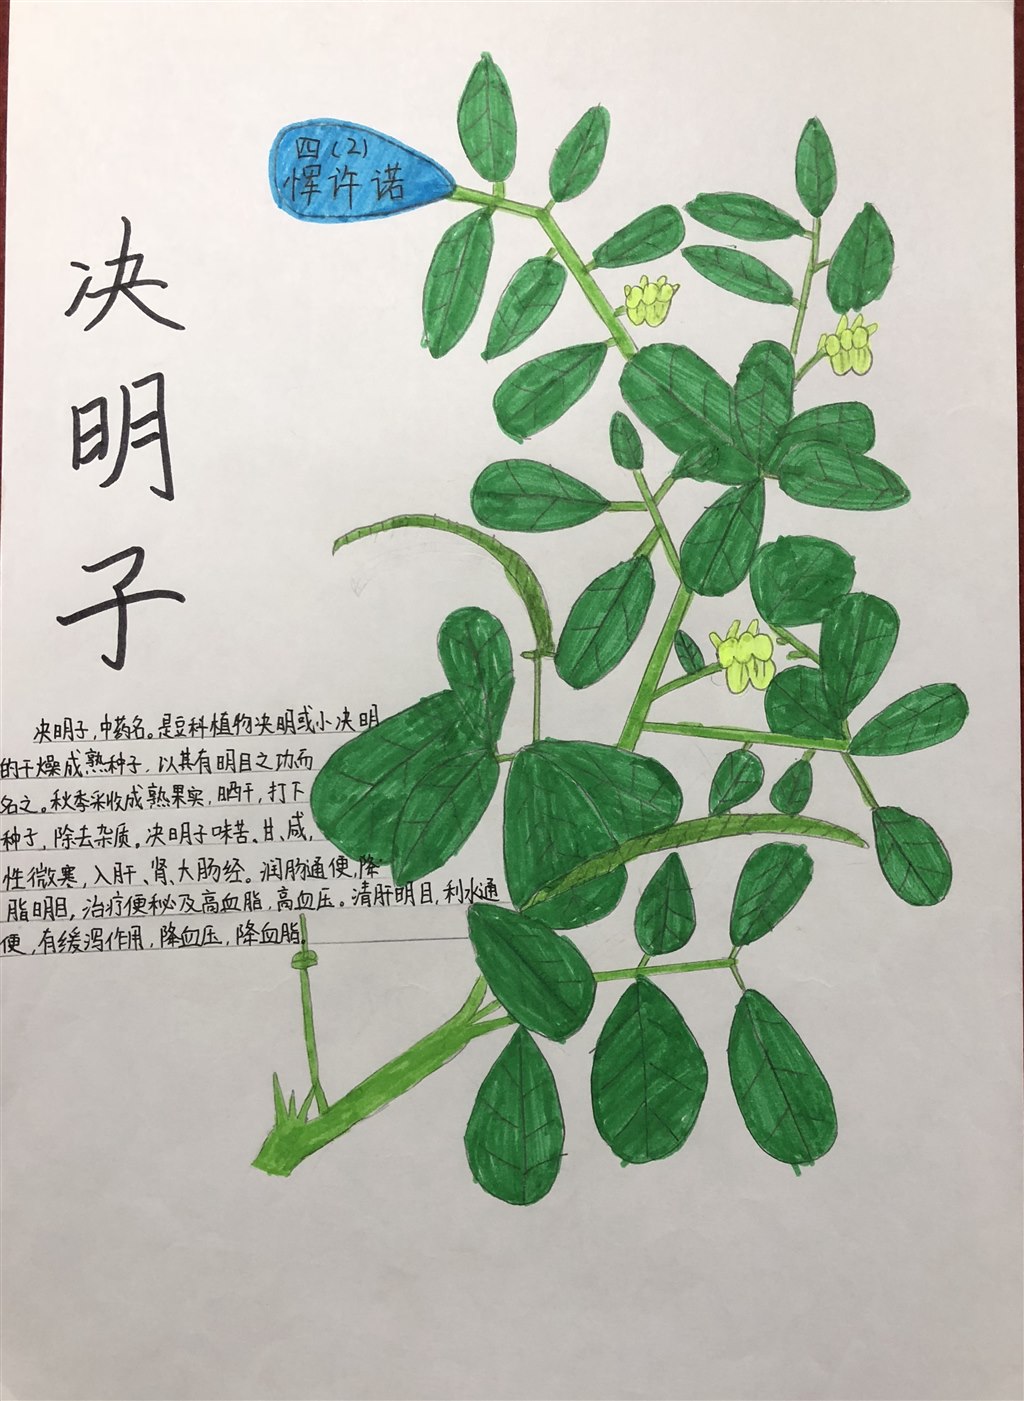 四(2)
恽许诺
决明子
决明子,中药名。是豆科植物决明或小决明
的干燥成熟种子,以其有明目之功而
名之。秋季采收成熟果实,晒干,打下
种子,除去杂质。决明子味苦、甘、咸,
性微寒,入肝、肾、大肠经。润肠通便,降
脂明目,治疗便秘及高血脂,高血压。清肝明目,利水通
便,有缓泻作用,降血压,降血脂。